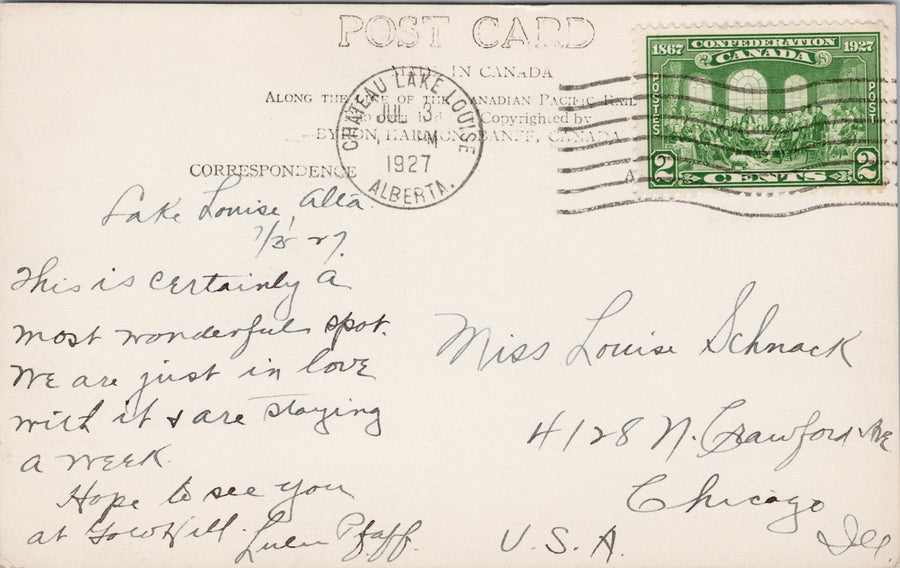 POST CARD
MADE IN CANADA
ALONG THE LINE OF THE CANADIAN PACIFIC RAIL
Copyrighted by
BYRON HARMON, BANFF, CANADA
CORRESPONDENCE
CHATEAU LAKE LOUISE
JUL 3
M
1927
ALBERTA.
1867 CONFEDERATION 1927
CANADA
POSTES
POST
2 CENTS 2
Lake Louise, Alta.
7/3/27.
This is certainly a
most wonderful spot.
We are just in love
with it & are staying
a week.
Hope to see you
at
Lulu Pfaff.
Miss Louise Schnack
4128 N. Crawford Ave
Chicago
Ill.
U.S.A.